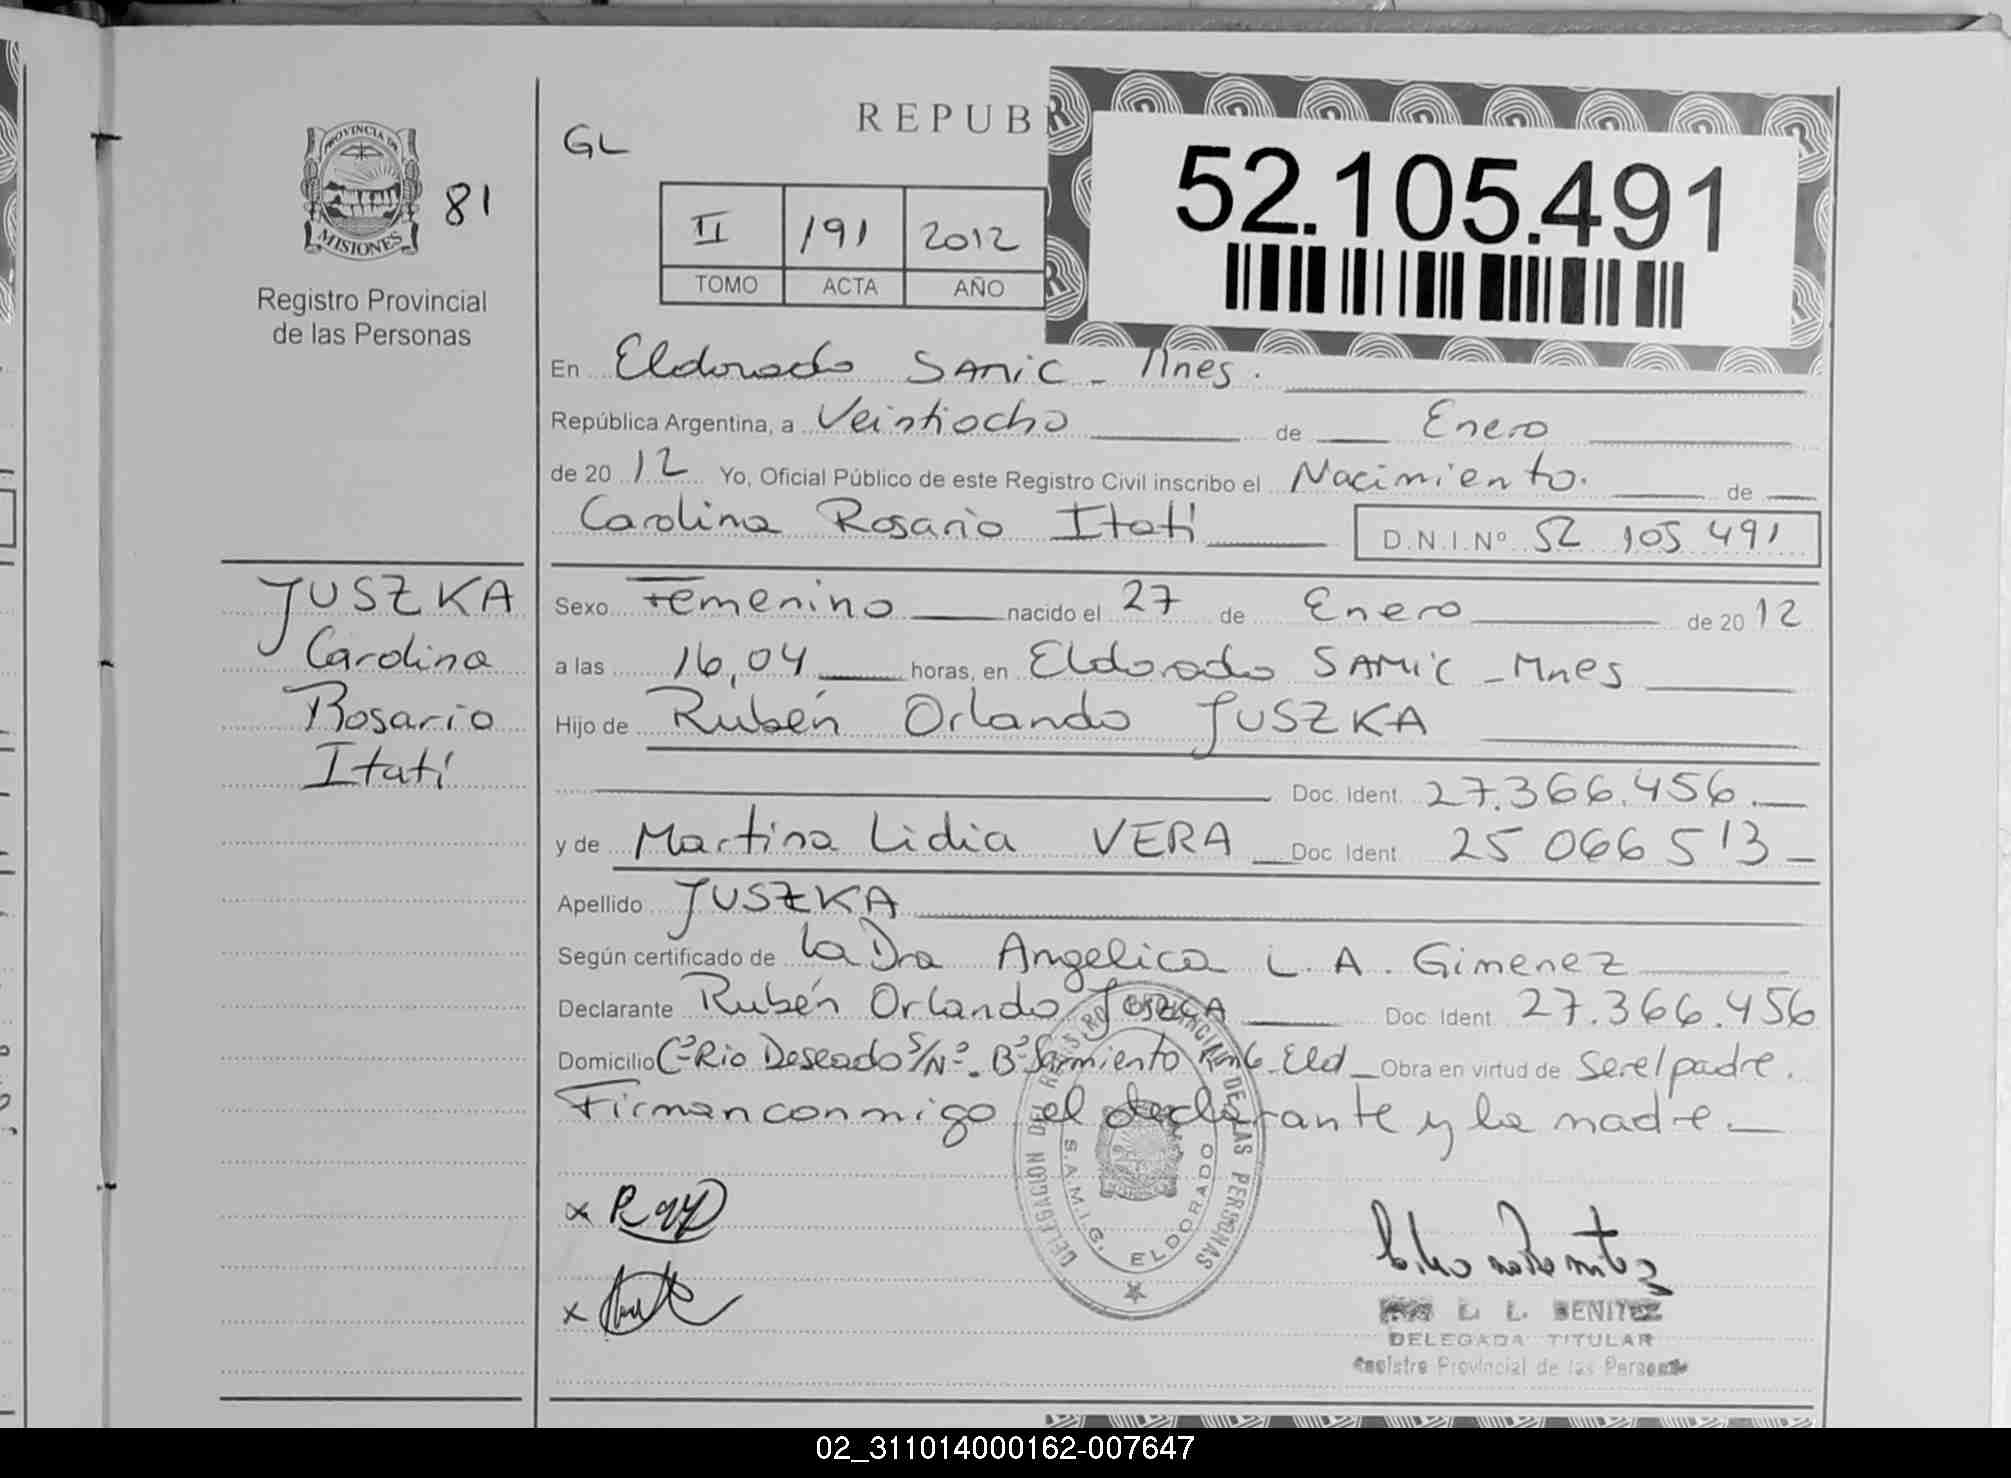 PROVINCIA DE
MISIONES
81
Registro Provincial
de las Personas
JUSZKA
Carolina
Rosario
Itatí
GL
REPUB
52.105.491
II 191 2012
TOMO ACTA AÑO
En Eldorado SAMIC - Mnes.
República Argentina, a Veintiocho de Enero
de 2012 Yo, Oficial Público de este Registro Civil inscribo el Nacimiento. de
Carolina Rosario Itatí D.N.I.Nº 52 105 491
Sexo Femenino nacido el 27 de Enero de 2012
a las 16,04 horas, en Eldorado SAMIC - Mnes
Hijo de Rubén Orlando JUSZKA
Doc. Ident. 27.366.456.
y de Martina Lidia VERA Doc. Ident. 25 066 513
Apellido JUSZKA
Según certificado de la Dra Angelica L. A. Gimenez
Declarante Rubén Orlando Doc. Ident. 27.366.456
Domicilio Cº Rio Deseado S/Nº. Bº Sarmiento Km6. Eld Obra en virtud de Ser el padre.
Firman conmigo el declarante y la madre.
DELEGACION DEL REGISTRO PROVINCIAL DE LAS PERSONAS
S.A.M.I.C. ELDORADO
L. L. BENITEZ
DELEGADA TITULAR
Registro Provincial de las Personas
02_311014000162-007647